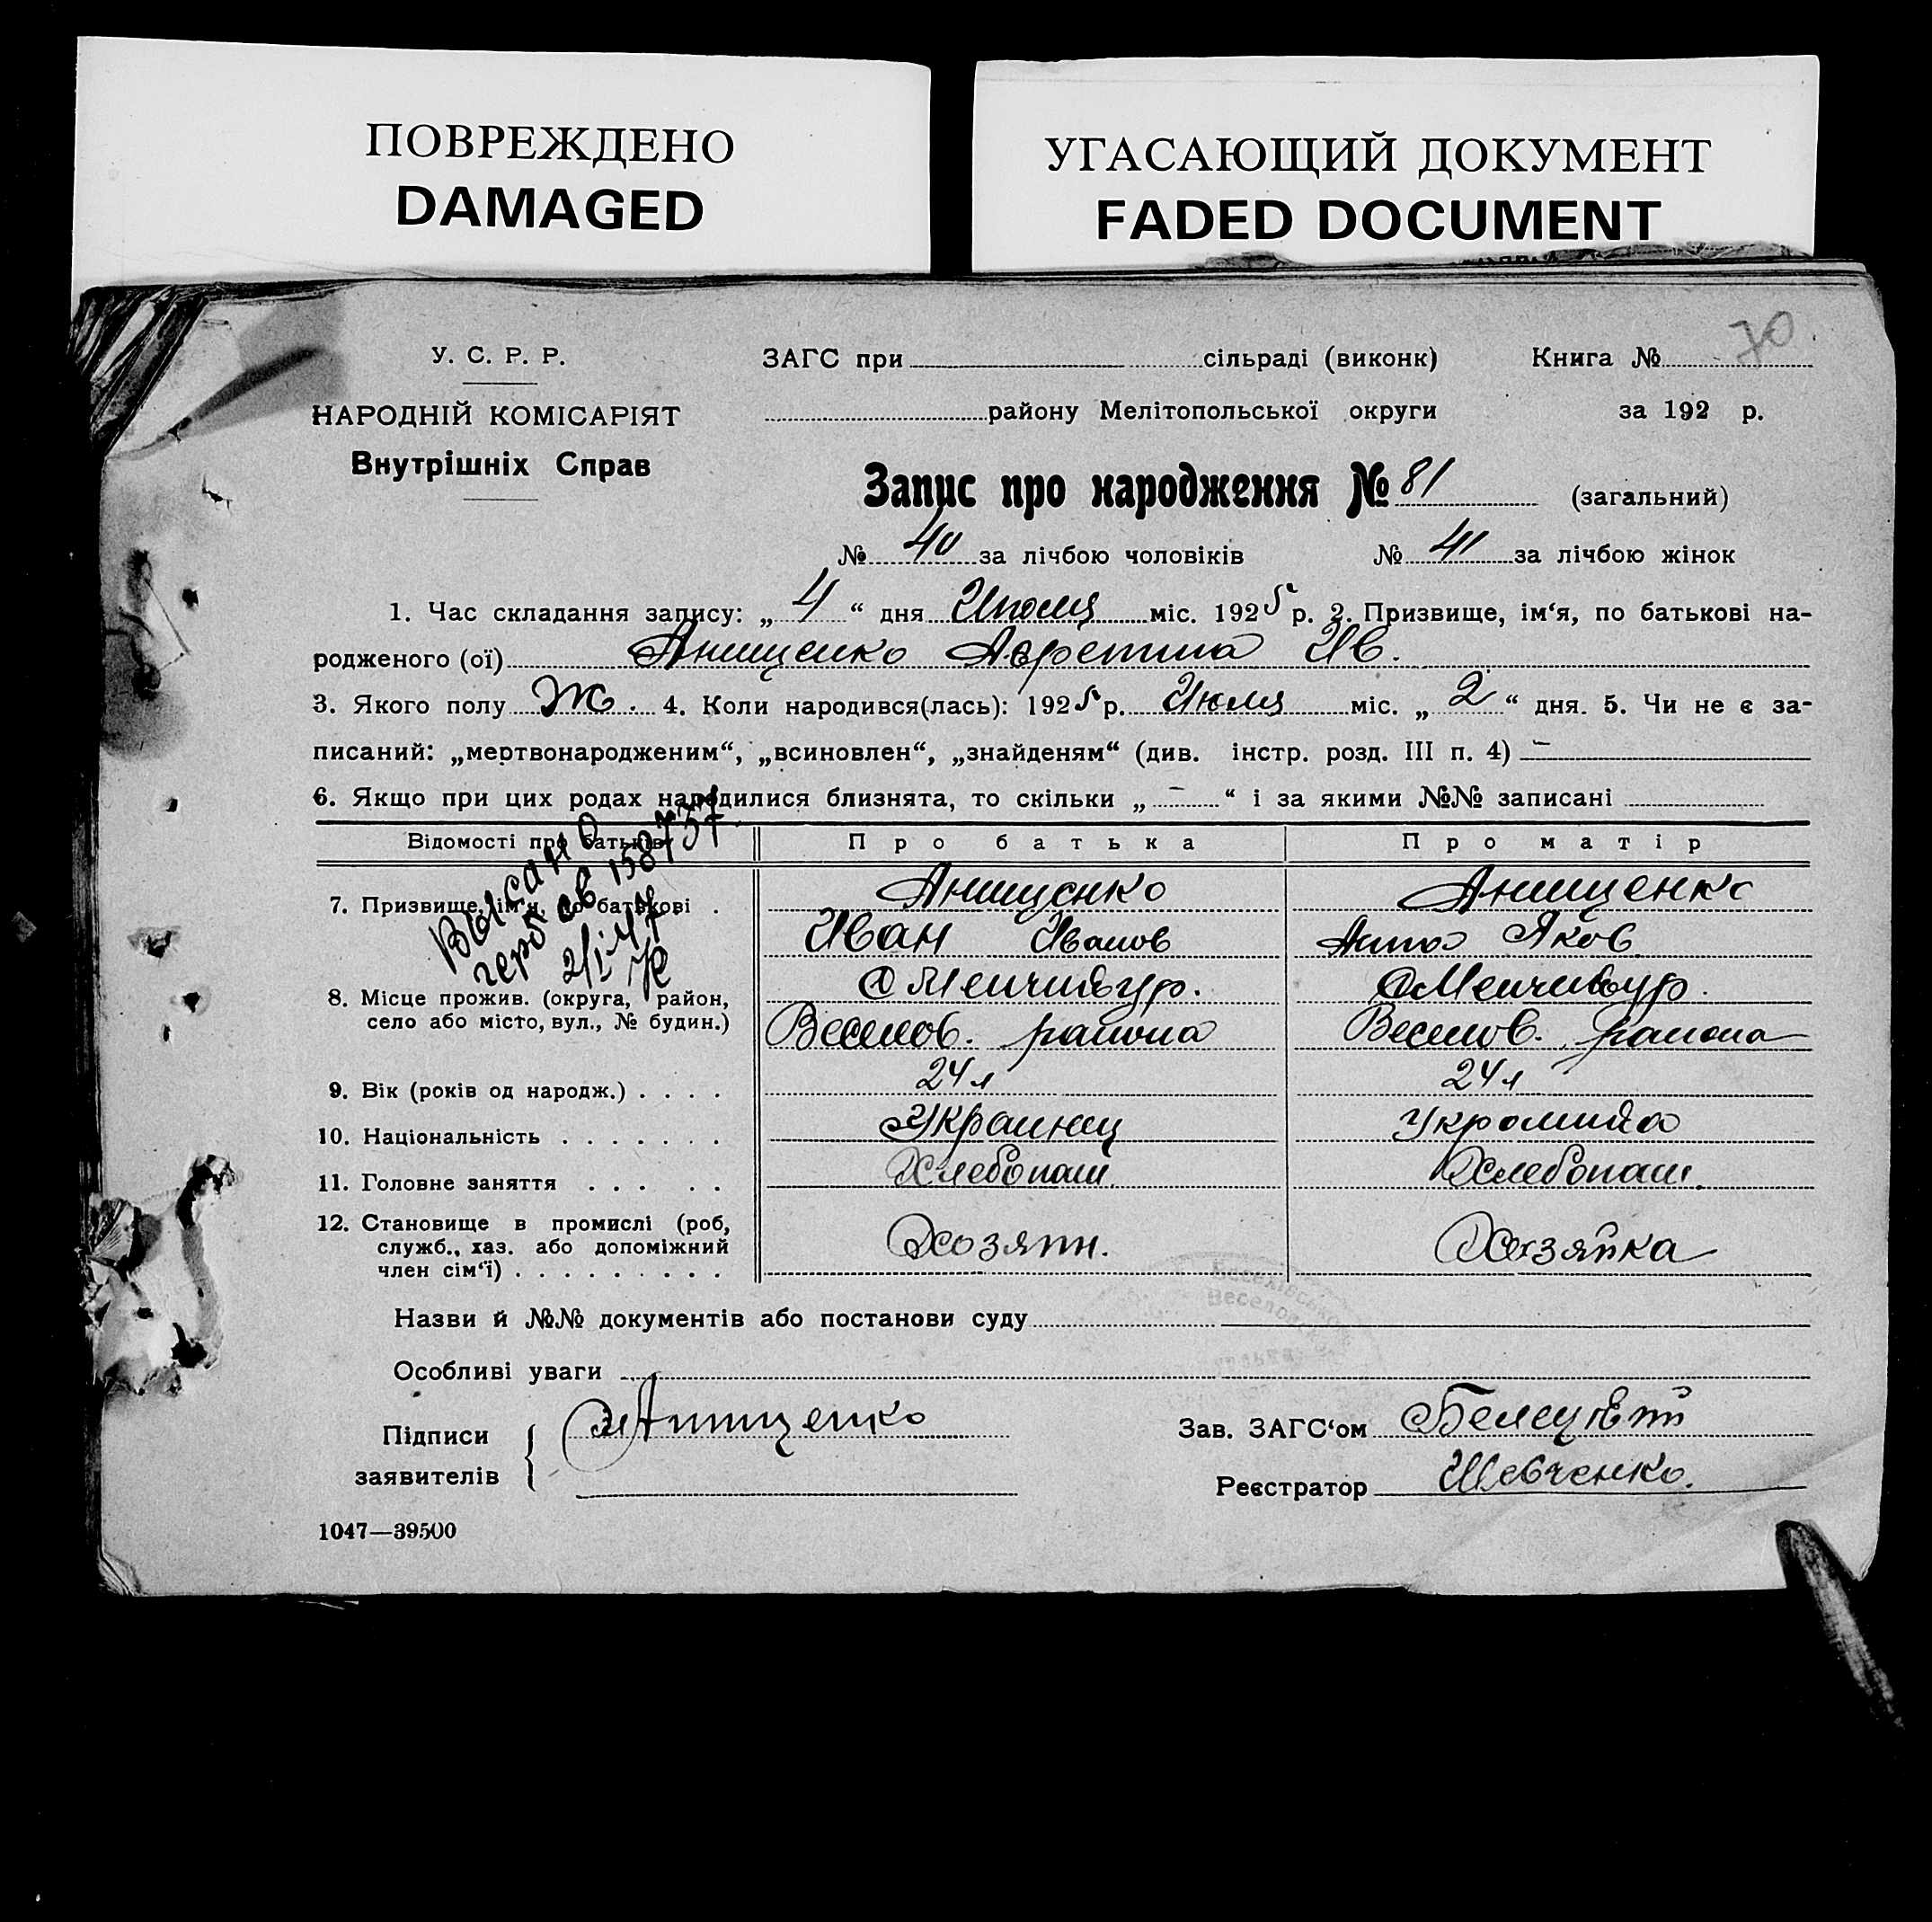 ПОВРЕЖДЕНО
DAMAGED
УГАСАЮЩИЙ ДОКУМЕНТ
FADED DOCUMENT
70
У. С. Р. Р.
НАРОДНІЙ КОМІСАРІЯТ
Внутрішніх Справ
ЗАГС при сільраді (виконк) Книга №
району Мелітопольської округи за 192 р.
Запис про народження № 81 (загальний)
№ 40 за лічбою чоловіків № 41 за лічбою жінок
1. Час складання запису: „ 4 “ дня Июля міс. 1925 р. 2. Призвище, ім‘я, по батькові на-
родженого (ої) Анищенко Ив.
3. Якого полу Ж. 4. Коли народився(лась): 1925 р. Июля міс. „ 2 “ дня. 5. Чи не є за-
писаний: „мертвонародженим“, „всиновлен“, „знайденям“ (див. інстр. розд. III п. 4) –
6. Якщо при цих родах народилися близнята, то скільки „ – “ і за якими №№ записані
Відомості про батьків Про батька Про матір
7. Призвище, ім‘я, по батькові . Анищенко Анищенко
Иван Иванов Яков
8. Місце прожив. (округа, район, село або місто, вул., № будин.) С Менчикур. С Менчикур.
Веселов. района Веселов. района
9. Вік (років од народж.) . . . . 24 л 24 л
10. Національність . . . . . . . Украинец Украинка
11. Головне заняття . . . . . Хлебопаш. Хлебопаш.
12. Становище в промислі (роб, служб., хаз. або допоміжний член сім‘ї) . . . . . . . . . Хозяин. Хозяйка
Выдано
св 158737
2/I-47
Назви й №№ документів або постанови суду
Особливі уваги
Підписи заявителів { Анищенко
Зав. ЗАГС‘ом
Реєстратор Шевченко.
1047—39500